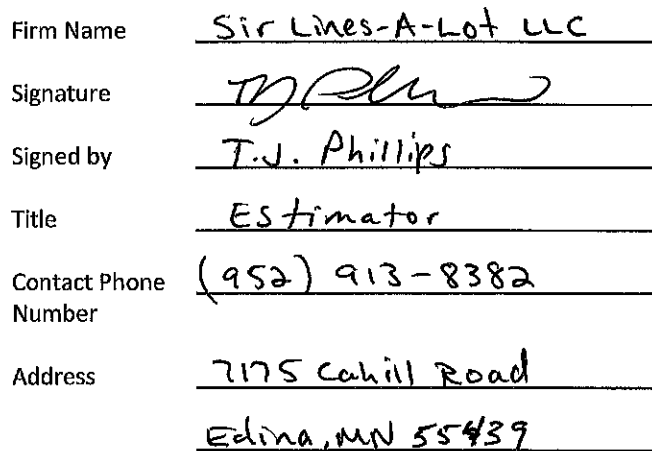 Firm Name Sir Lines-A-Lot LLC
Signature
Signed by T.J. Phillips
Title Estimator
Contact Phone Number (952) 913-8382
Address 7175 Cahill Road
Edina, MN 55439